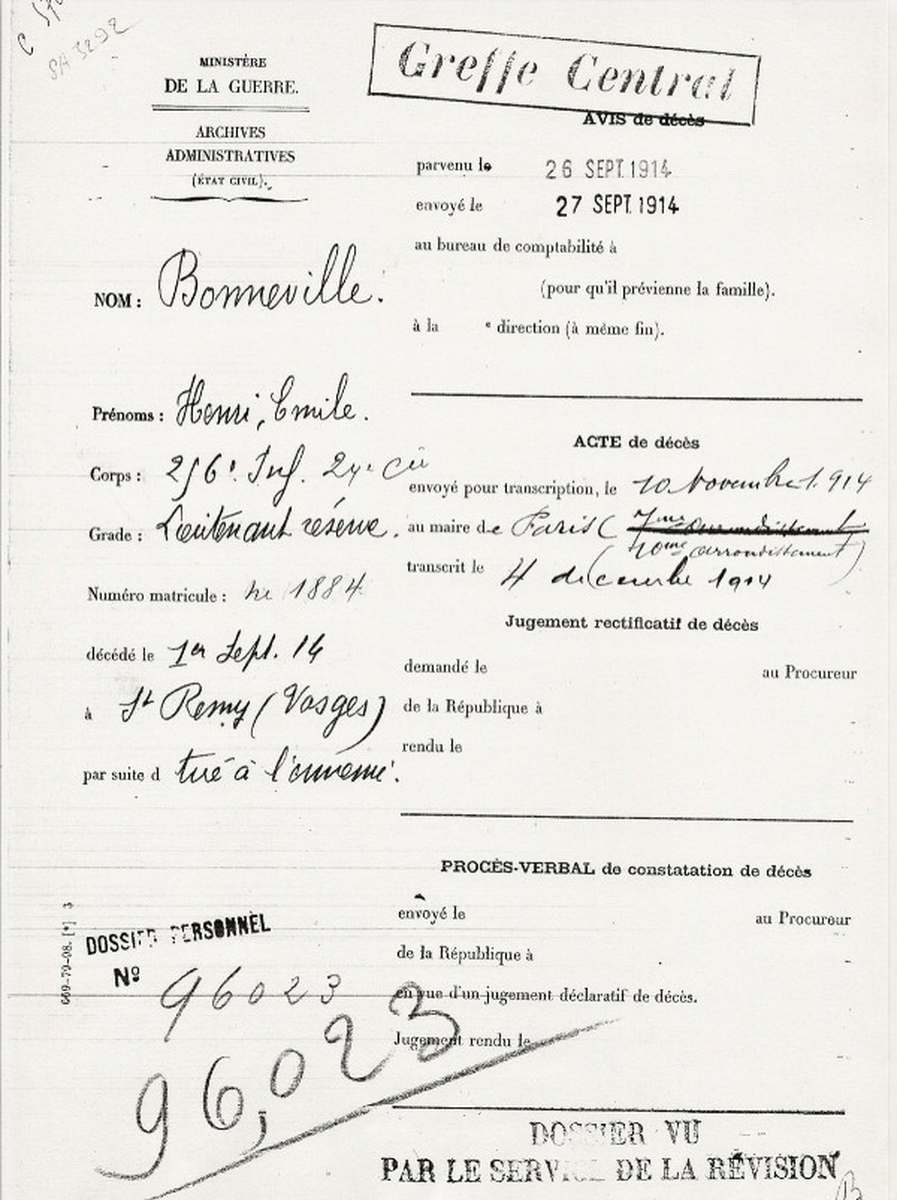 MINISTÈRE
DE LA GUERRE.
ARCHIVES
ADMINISTRATIVES
(ÉTAT CIVIL).
NOM : Bonneville.
Prénoms : Henri, Emile.
Corps : 256e Inf. 24e Cie
Grade : Lieutenant réserve.
Numéro matricule : né 1884
décédé le 1er Sept. 14
à St Remy (Vosges)
par suite d tué à l'ennemi.
DOSSIER PERSONNEL
No 96023
96,023
669-79-08. [*] 3
Greffe Central
AVIS de décès
parvenu le 26 SEPT. 1914
envoyé le 27 SEPT. 1914
au bureau de comptabilité à
(pour qu'il prévienne la famille).
à la e direction (à même fin).
ACTE de décès
envoyé pour transcription, le 10 Novembre 1914
au maire de Paris (7me arrondissement
10me arrondissement)
transcrit le 4 decembre 1914
Jugement rectificatif de décès
demandé le au Procureur
de la République à
rendu le
PROCÈS-VERBAL de constatation de décès
envoyé le au Procureur
de la République à
en vue d'un jugement déclaratif de décès.
Jugement rendu le
DOSSIER VU
PAR LE SERVICE DE LA RÉVISION